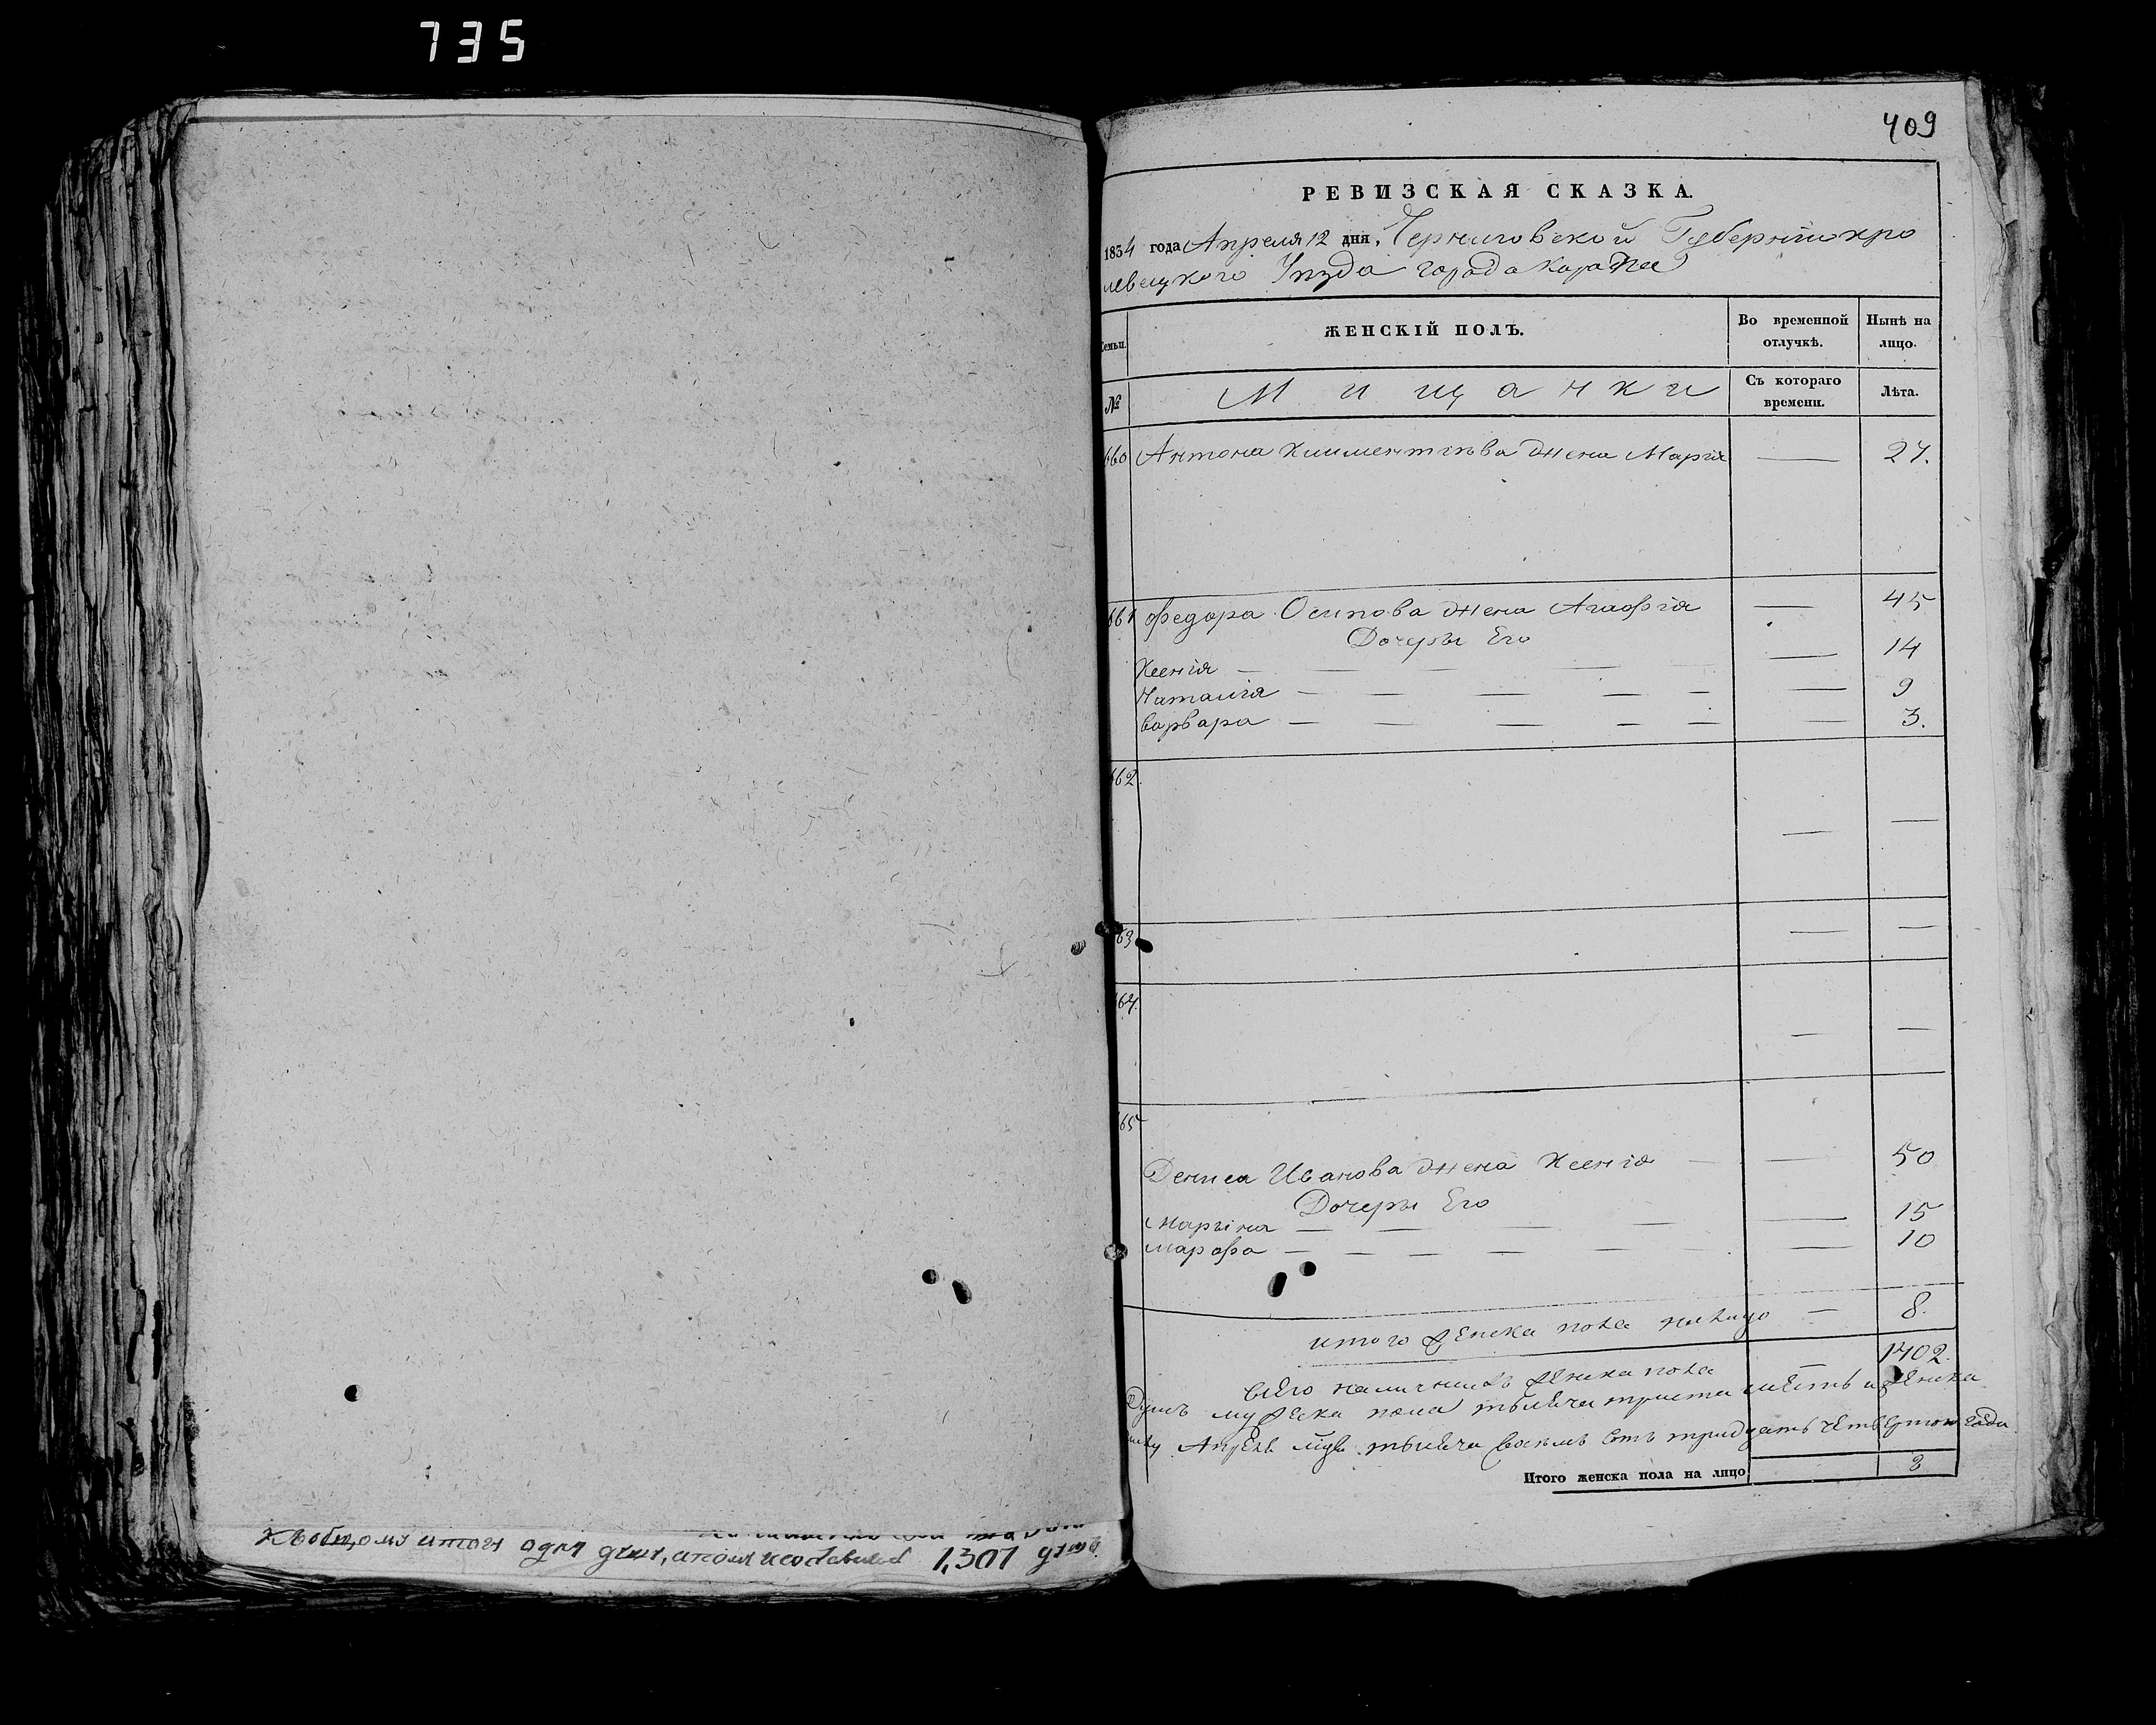 735
409
РЕВИЗСКАЯ СКАЗКА.
1834 года Апреля 12 дня, Черниговской Губернии кро
левецкого Уезда города Коропа
Семьи.
ЖЕНСКІЙ ПОЛЪ.
Во временной отлучкѣ.
Нынѣ на лицо.
№
Мищанки
Съ котораго времени.
Лѣта.
660 Антона Климентіева жена Марія — 27.
661 Федора Осипова жена Агафія — 45
Дочеры Его
Ксенія — — — — — 14
Наталія — — — — — 9
варвара — — — — — 3.
662. — —
63 — —
64. — —
65
Дениса Иванова жена Ксенія — — 50
Дочеры Его
Марына — — — — — 15
марфа — — — — — 10
итого женска пола налицо — 8.
всего наличныхъ женска пола — 1402.
Душъ мужеска пола тысяча триста шесть и женска
Апреля тысяча восемь сотъ тридцать четвертого года
Итого женска пола на лицо 8
къ общому итогу одну душу, 1,307 душъ.